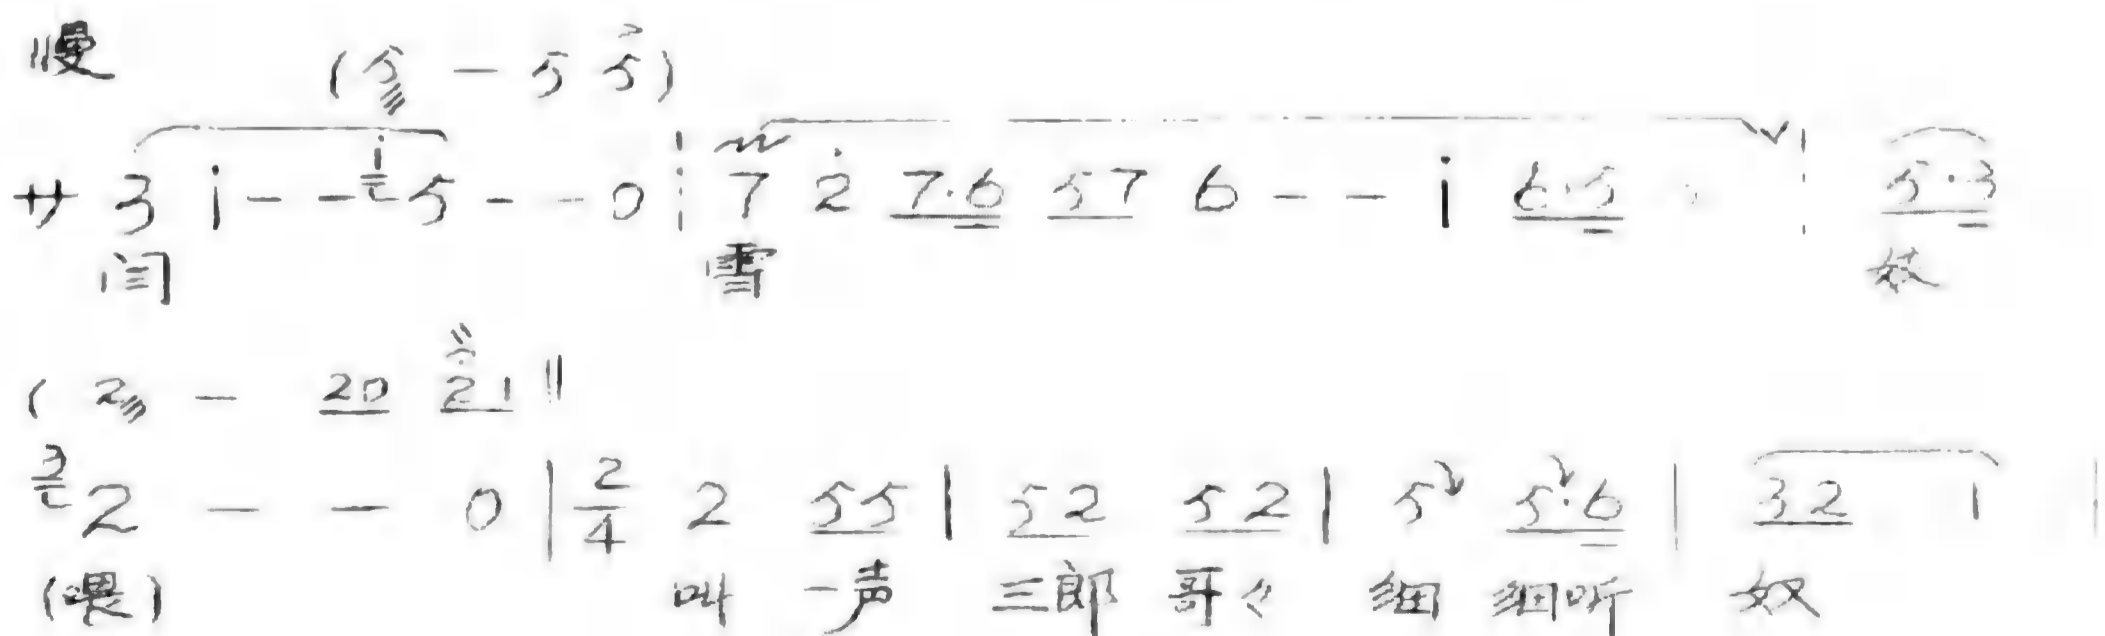 慢
(5 - 5 5)
サ 3 i - - i 5 - - 0 ┆ 7 2̇ 7·6 57 6 - - i 6·5 ┆ 5·3
闫 雪 妓
( 2 - 20 21 ‖
3 2 - - 0 | 2/4 2 55 | 52 52 | 5 5·6 | 32 1 |
(喂) 叫 一声 三郎 哥々 细 细听 奴